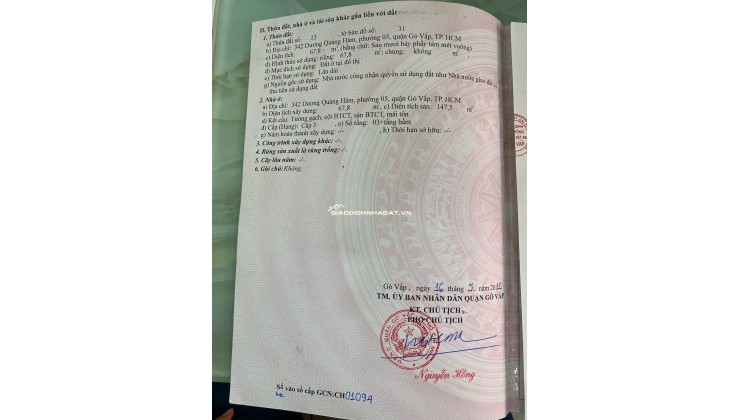 II. Thửa đất, nhà ở và tài sản khác gắn liền với đất
1. Thửa đất:
a) Thửa đất số: 13 , tờ bản đồ số: 31
b) Địa chỉ: 342 Dương Quảng Hàm, phường 05, quận Gò Vấp, TP. HCM
c) Diện tích: 67,8 m², (bằng chữ: Sáu mươi bảy phẩy tám mét vuông)
d) Hình thức sử dụng: riêng: 67,8 m²; chung: không m²
đ) Mục đích sử dụng: Đất ở tại đô thị
e) Thời hạn sử dụng: Lâu dài
g) Nguồn gốc sử dụng: Nhà nước công nhận quyền sử dụng đất như Nhà nước giao đất có
thu tiền sử dụng đất
2. Nhà ở:
a) Địa chỉ: 342 Dương Quảng Hàm, phường 05, quận Gò Vấp, TP. HCM
b) Diện tích xây dựng: 67,8 m², c) Diện tích sàn: 147,5 m²
c) Kết cấu: Tường gạch, cột BTCT, sàn BTCT, mái tôn
d) Cấp (Hạng): Cấp 3 , e) Số tầng: 03+tầng hầm
g) Năm hoàn thành xây dựng: -/- , h) Thời hạn sở hữu: -/-
3. Công trình xây dựng khác: -/-
4. Rừng sản xuất là rừng trồng: -/-
5. Cây lâu năm: -/-
6. Ghi chú: Không.
GIAODICHNHADAT.VN
Gò Vấp , ngày 16 tháng 5 năm
TM. ỦY BAN NHÂN DÂN QUẬN GÒ VẤP
KT. CHỦ TỊCH
PHÓ CHỦ TỊCH
Nguyễn Hồng
Số vào sổ cấp GCN:CH01094